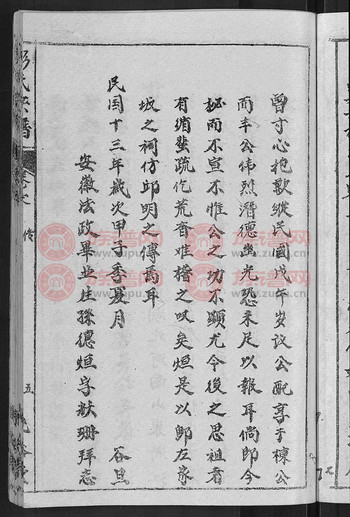 曾寸心抱歉縱民國戊午岁议公配享于棟公
而丰公伟烈潛德幽光恐未足以報耳倘即今
秘而不宣不惟公之功不顯尤令後之思祖者
有湮疏仡荒杳难稽之叹矣烜是以即左彖
坡之祠仿邱明之傳焉耳
民国十三年歲次甲子季夏月 谷旦
安徽法政畢业生孫德烜字献珊拜志
氏宗譜
卷
传
五